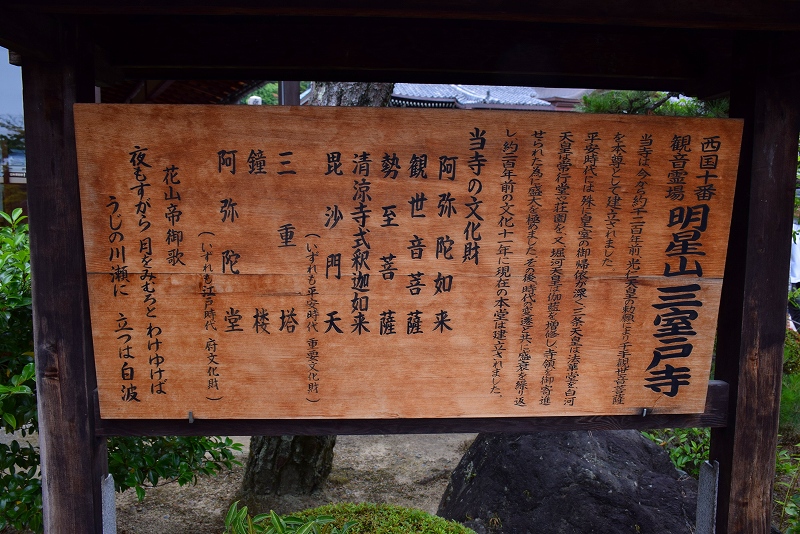 西国十番
観音霊場
明星山三室戸寺
当寺は今から約千二百年前、光仁天皇の勅願により千手観世音菩薩
を本尊として建立されました
平安時代には殊に皇室の御帰依が深く三条天皇は法華堂を白河
天皇は常行堂と荘園を、又堀河天皇は伽藍を増修し寺領を御寄進
せられた為に盛大を極めました。その後、時代の変遷と共に盛衰を繰り返
し約二百年前の文化十一年に現在の本堂は建立されました。
当寺の文化財
阿弥陀如来
観世音菩薩
勢至菩薩
清涼寺式釈迦如来
毘沙門天
(いずれも平安時代 重要文化財)
三重塔
鐘楼
阿弥陀堂
(いずれも江戸時代 府文化財)
花山帝御歌
夜もすがら 月をみむろと わけゆけば
うじの川瀬に 立つは白波